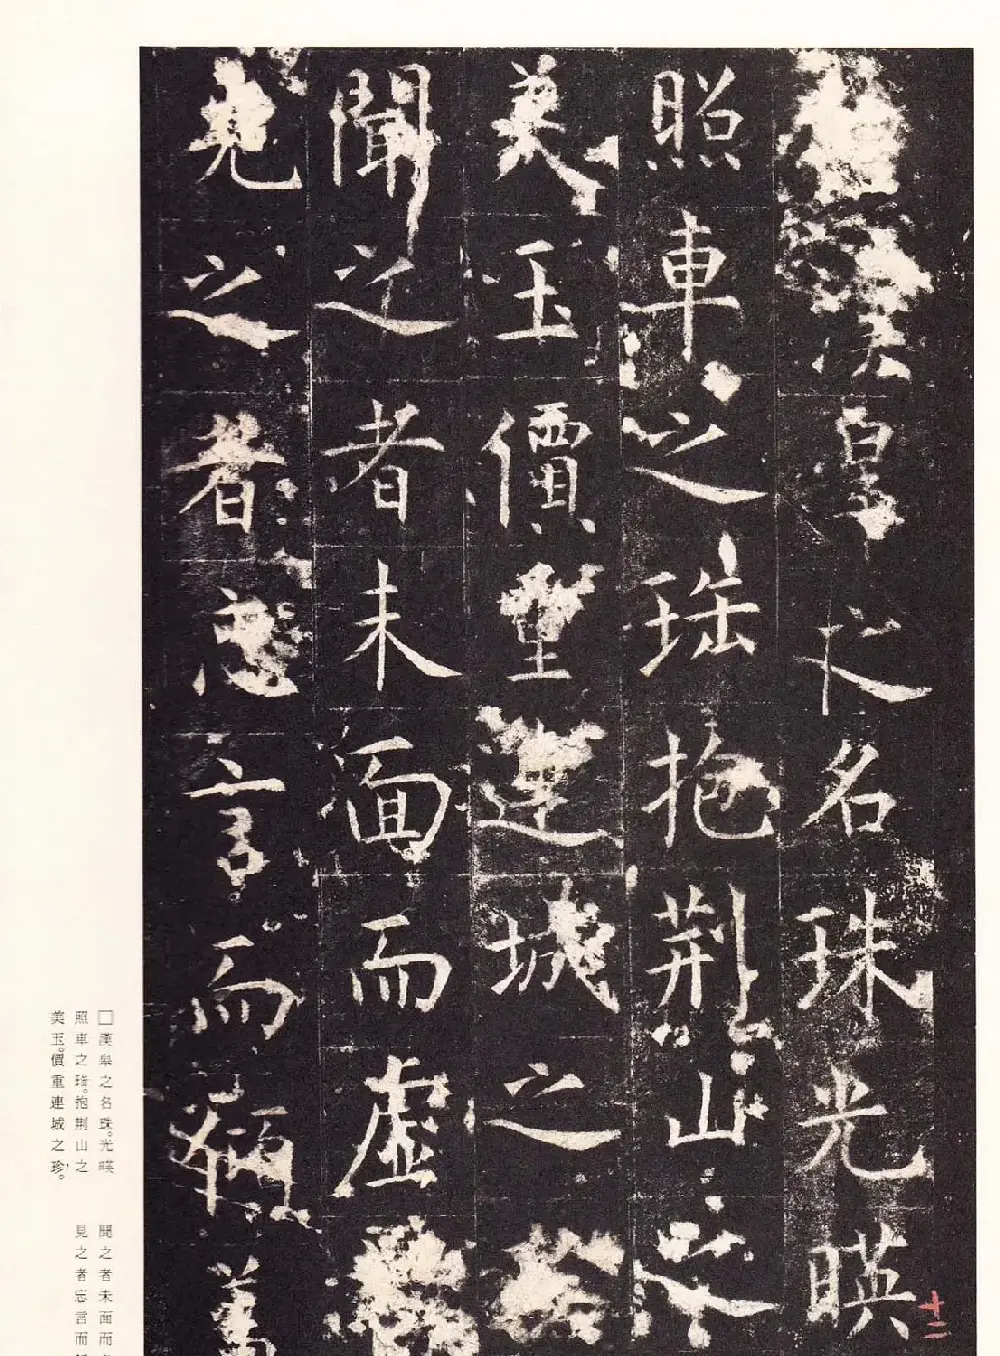 漢皋之名珠光暎
照車之瑎抱荆山之
美玉價重連城之
聞之者未面而虛
見之者忘言而
十二
□漢皋之名珠。光暎
照車之瑎。抱荆山之
美玉。價重連城之珍。
聞之者未面而
見之者忘言而